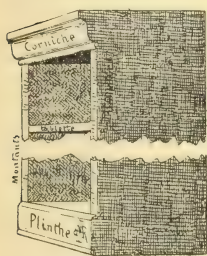 Corniche
Montants
Plinthe